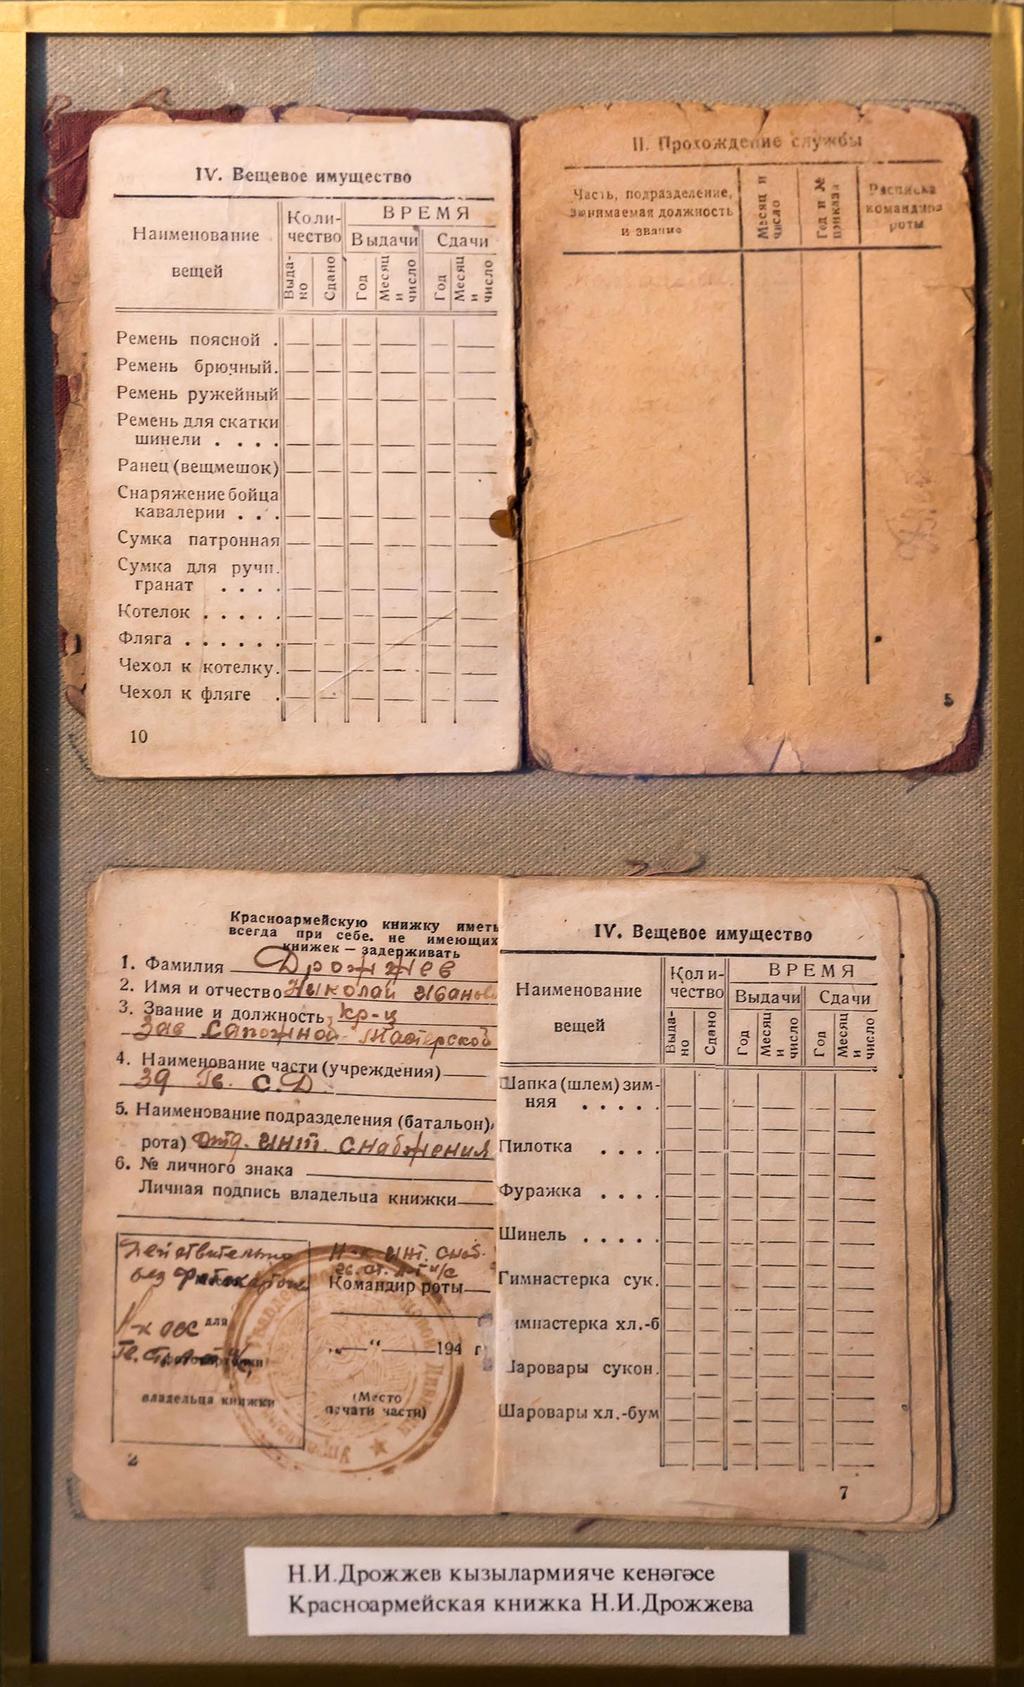 IV. Вещевое имущество
Наименование вещей
Коли-
чество
ВРЕМЯ
Выдачи
Сдачи
Выда-
но
Сдано
Год
Месяц
и
число
Год
Месяц
и
число
Ремень поясной .
Ремень брючный.
Ремень ружейный
Ремень для скатки
шинели . . . .
Ранец (вещмешок)
Снаряжение бойца
кавалерии . . .
Сумка патронная
Сумка для ручн.
гранат . . . .
Котелок . . . . .
Фляга . . . . . .
Чехол к котелку.
Чехол к фляге .
10
II. Прохождение службы
Часть, подразделение,
занимаемая должность
и звание
Месяц и
число
Год и №
приказа
Расписка
командира
роты
5
Красноармейскую книжку иметь
всегда при себе. не имеющих
книжек — задерживать
1. Фамилия Дрожжев
2. Имя и отчество Николай Иванов
3. Звание и должность кр-ц
Зав Сапожной Мастерской
4. Наименование части (учреждения)
39 Гв. С.Д.
5. Наименование подразделения (батальон),
рота) Отд. инт. снабжения
6. № личного знака
Личная подпись владельца книжки
Действительно
без фотокарточ
для
владельца книжки
Н-к инт. снаб.
Командир роты
„ “ 194 г
(Место
печати части)
2
IV. Вещевое имущество
Наименование
вещей
Коли-
чество
ВРЕМЯ
Выдачи
Сдачи
Выда-
но
Сдано
Год
Месяц
и
число
Год
Месяц
и
число
Шапка (шлем) зим-
няя . . . . .
Пилотка . . . .
Фуражка . . . .
Шинель . . . . .
Гимнастерка сук.
имнастерка хл.-б
Шаровары сукон.
Шаровары хл.-бум
7
Н.И.Дрожжев кызылармияче кенәгәсе
Красноармейская книжка Н.И.Дрожжева